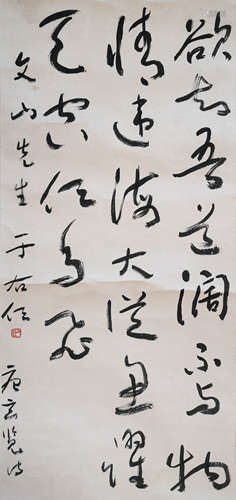 欲知吾道阔不与物
情违海大从鱼跃
天空任鸟飞
文山先生 于右任
唐玄览诗